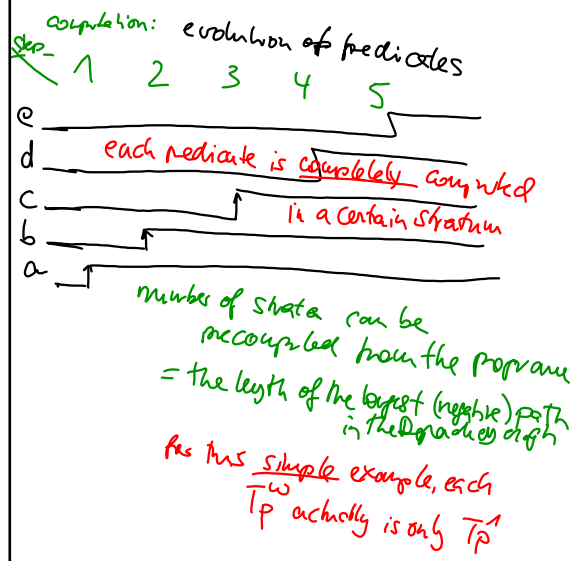 computation: evolution of predicates
step
1 2 3 4 5
e
d each predicate is completely computed
c in a certain stratum
b
a
number of strata can be
precomputed from the program
= the length of the longest (negative) path
in the Dependency graph
For this simple example, each
T_P^ω actually is only T_P^1